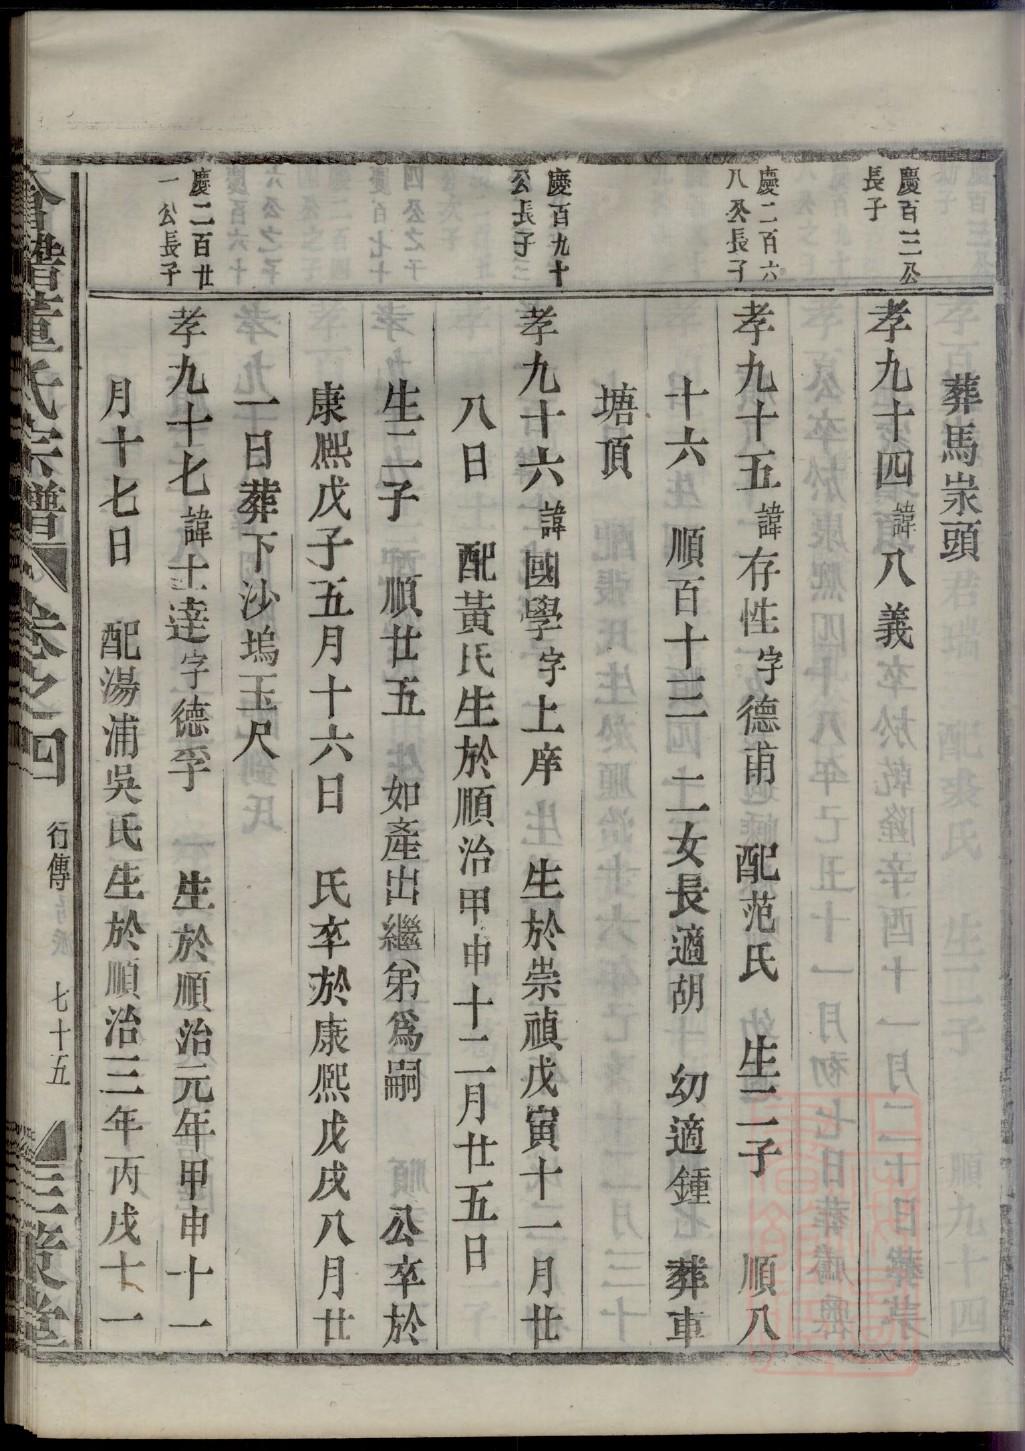 葬馬崬頭
慶百三公
長子
孝九十四諱八義
慶二百六
八公長子
孝九十五諱存性字德甫　配范氏　生二子　順八
十六　順百十三　二女長適胡　幼適鍾　葬車
塘頂
慶百九十
公長子
孝九十六諱國學字上庠　生於崇禎戊寅十二月廿
八日　配黃氏生於順治甲申十二月廿五日
生二子　順廿五　如產出繼弟為嗣　公卒於
康熙戊子五月十六日　氏卒於康熙戊戌八月廿
一日葬下沙塢玉尺
慶二百廿
一公長子
孝九十七諱士達字德孚　生於順治元年甲申十一
月十七日　配湯浦吳氏生於順治三年丙戌十一
會稽董氏宗譜　卷之四　行傳　七十五　三策堂